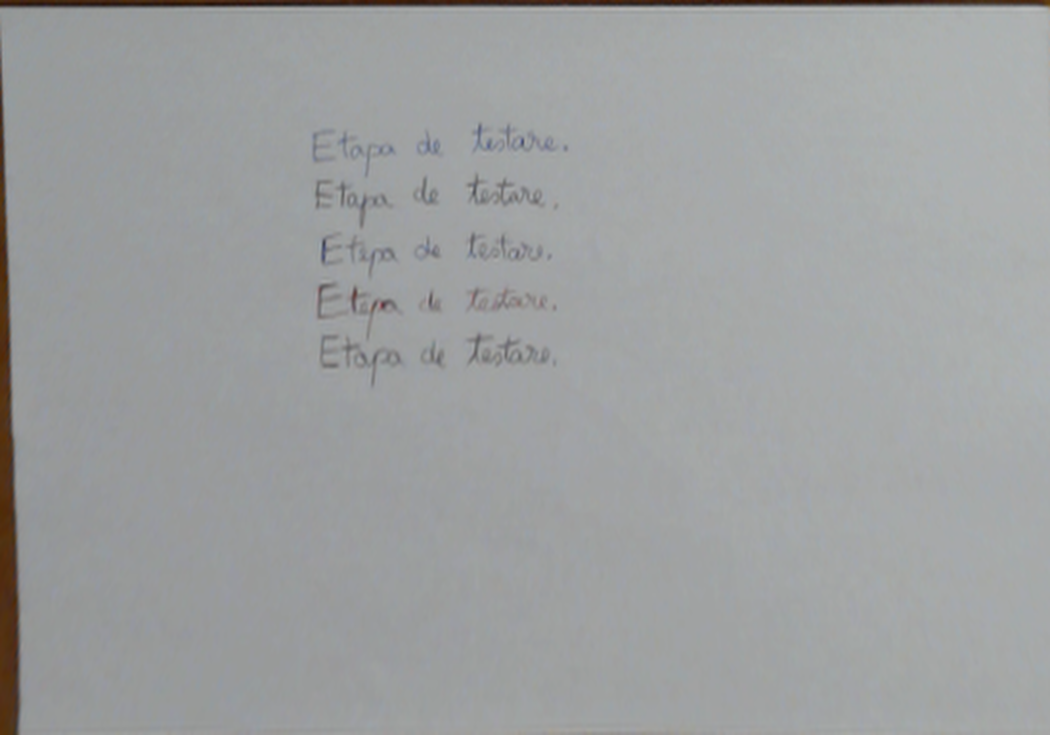 Etapa de testare.
Etapa de testare.
Etapa de testare.
Etapa de testare.
Etapa de testare.